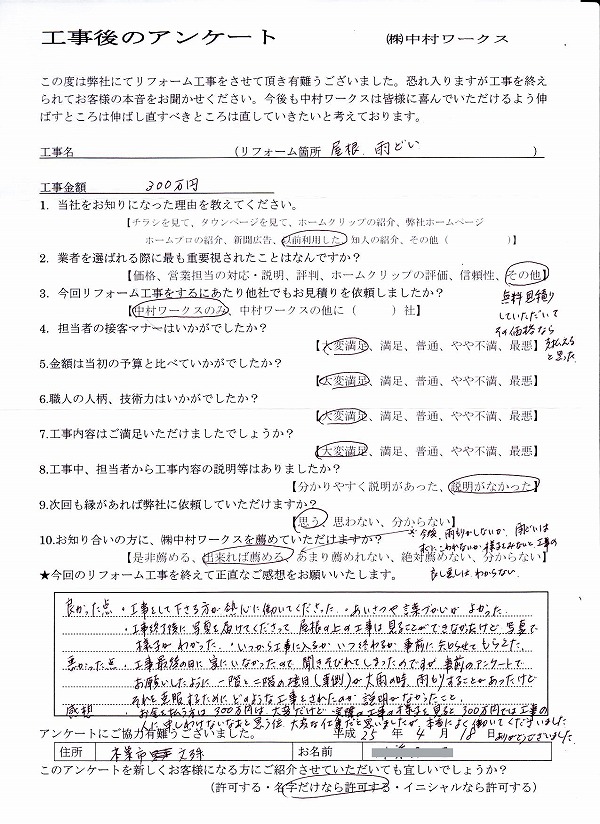 工事後のアンケート ㈱中村ワークス
この度は弊社にてリフォーム工事をさせて頂き有難うございました。恐れ入りますが工事を終え
られてお客様の本音をお聞かせください。今後も中村ワークスは皆様に喜んでいただけるよう伸
ばすところは伸ばし直すべきところは直していきたいと考えております。
工事名 (リフォーム箇所 屋根、雨どい )
工事金額 300万円
1. 当社をお知りになった理由を教えてください。
【チラシを見て、タウンページを見て、ホームクリップの紹介、弊社ホームページ
ホームプロの紹介、新聞広告、以前利用した、知人の紹介、その他( )】
2. 業者を選ばれる際に最も重要視されたことはなんですか?
【価格、営業担当の対応・説明、評判、ホームクリップの評価、信頼性、その他】
無料見積り
していただいて
その価格なら
払える
と思った
3. 今回リフォーム工事をするにあたり他社でもお見積りを依頼しましたか?
【中村ワークスのみ、中村ワークスの他に( )社】
4. 担当者の接客マナーはいかがでしたか?
【大変満足、満足、普通、やや不満、最悪】
5.金額は当初の予算と比べていかがでしたか?
【大変満足、満足、普通、やや不満、最悪】
6.職人の人柄、技術力はいかがでしたか?
【大変満足、満足、普通、やや不満、最悪】
7.工事内容はご満足いただけましたでしょうか?
【大変満足、満足、普通、やや不満、最悪】
8.工事中、担当者から工事内容の説明等はありましたか?
【分かりやすく説明があった、説明がなかった】
9.次回も縁があれば弊社に依頼していただけますか?
【思う、思わない、分からない】
10.お知り合いの方に、㈱中村ワークスを薦めていただけますか?
※今後、雨もりがしないか、雨どいは
すぐにこわれないか様子をみないと工事の
良し悪しは、わからない。
【是非薦める、出来れば薦める、あまり薦めれない、絶対薦めない、分からない】
★今回のリフォーム工事を終えて正直なご感想をお願いいたします。
良かった点 ・工事をして下さる方が熱心に働いてくださった ・あいさつや言葉づかいがよかった
・工事終了後に写真を届けてくださって屋根の上の工事は見ることができなかったけど写真で
様子がわかった。・いつから工事に入るか、いつ終わるか、事前に知らせてもらえた。
悪かった点 ・工事最後の日に家にいなかったので聞きそびれてしまったのですが事前のアンケートで
お願いしたように一階と二階の境目(東側)が大雨の時、雨もりすることがあったけど
それを克服するためにどのような工事をされたのか説明がなかったこと。
感想 ・お金を払う方は300万円は大変だけど実際の工事の様子を見ると300万円では工事の
人に申しわけないなあと思う位、大変な仕事だと思いましたが、本当によく働いてくださいました
ありがとうございました。
アンケートにご協力有難うございました。 平成 25 年 4 月 18 日
住所 本巣市 文殊 お名前
このアンケートを新しくお客様になる方にご紹介させていただいても宜しいでしょうか?
(許可する・名字だけなら許可する・イニシャルなら許可する)